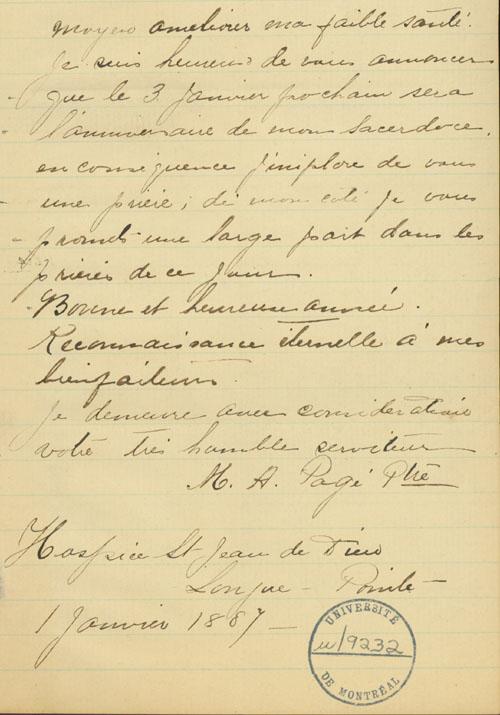 moyens améliorer ma faible santé.
Je suis heureux de vous annoncer
que le 3 Janvier prochain sera
l'anniversaire de mon sacerdoce,
en conséquence j'implore de vous
une prière; de mon côté je vous
promets une large part dans les
prières de ce jour.
Bonne et heureuse année.
Reconnaissance éternelle à mes
bienfaiteurs.
Je demeure avec considération
votre très humble serviteur
M. A. Pagé Ptre
Hospice St Jean de Dieu
Longue-Pointe
1 Janvier 1887
UNIVERSITÉ
u/9232
DE MONTRÉAL